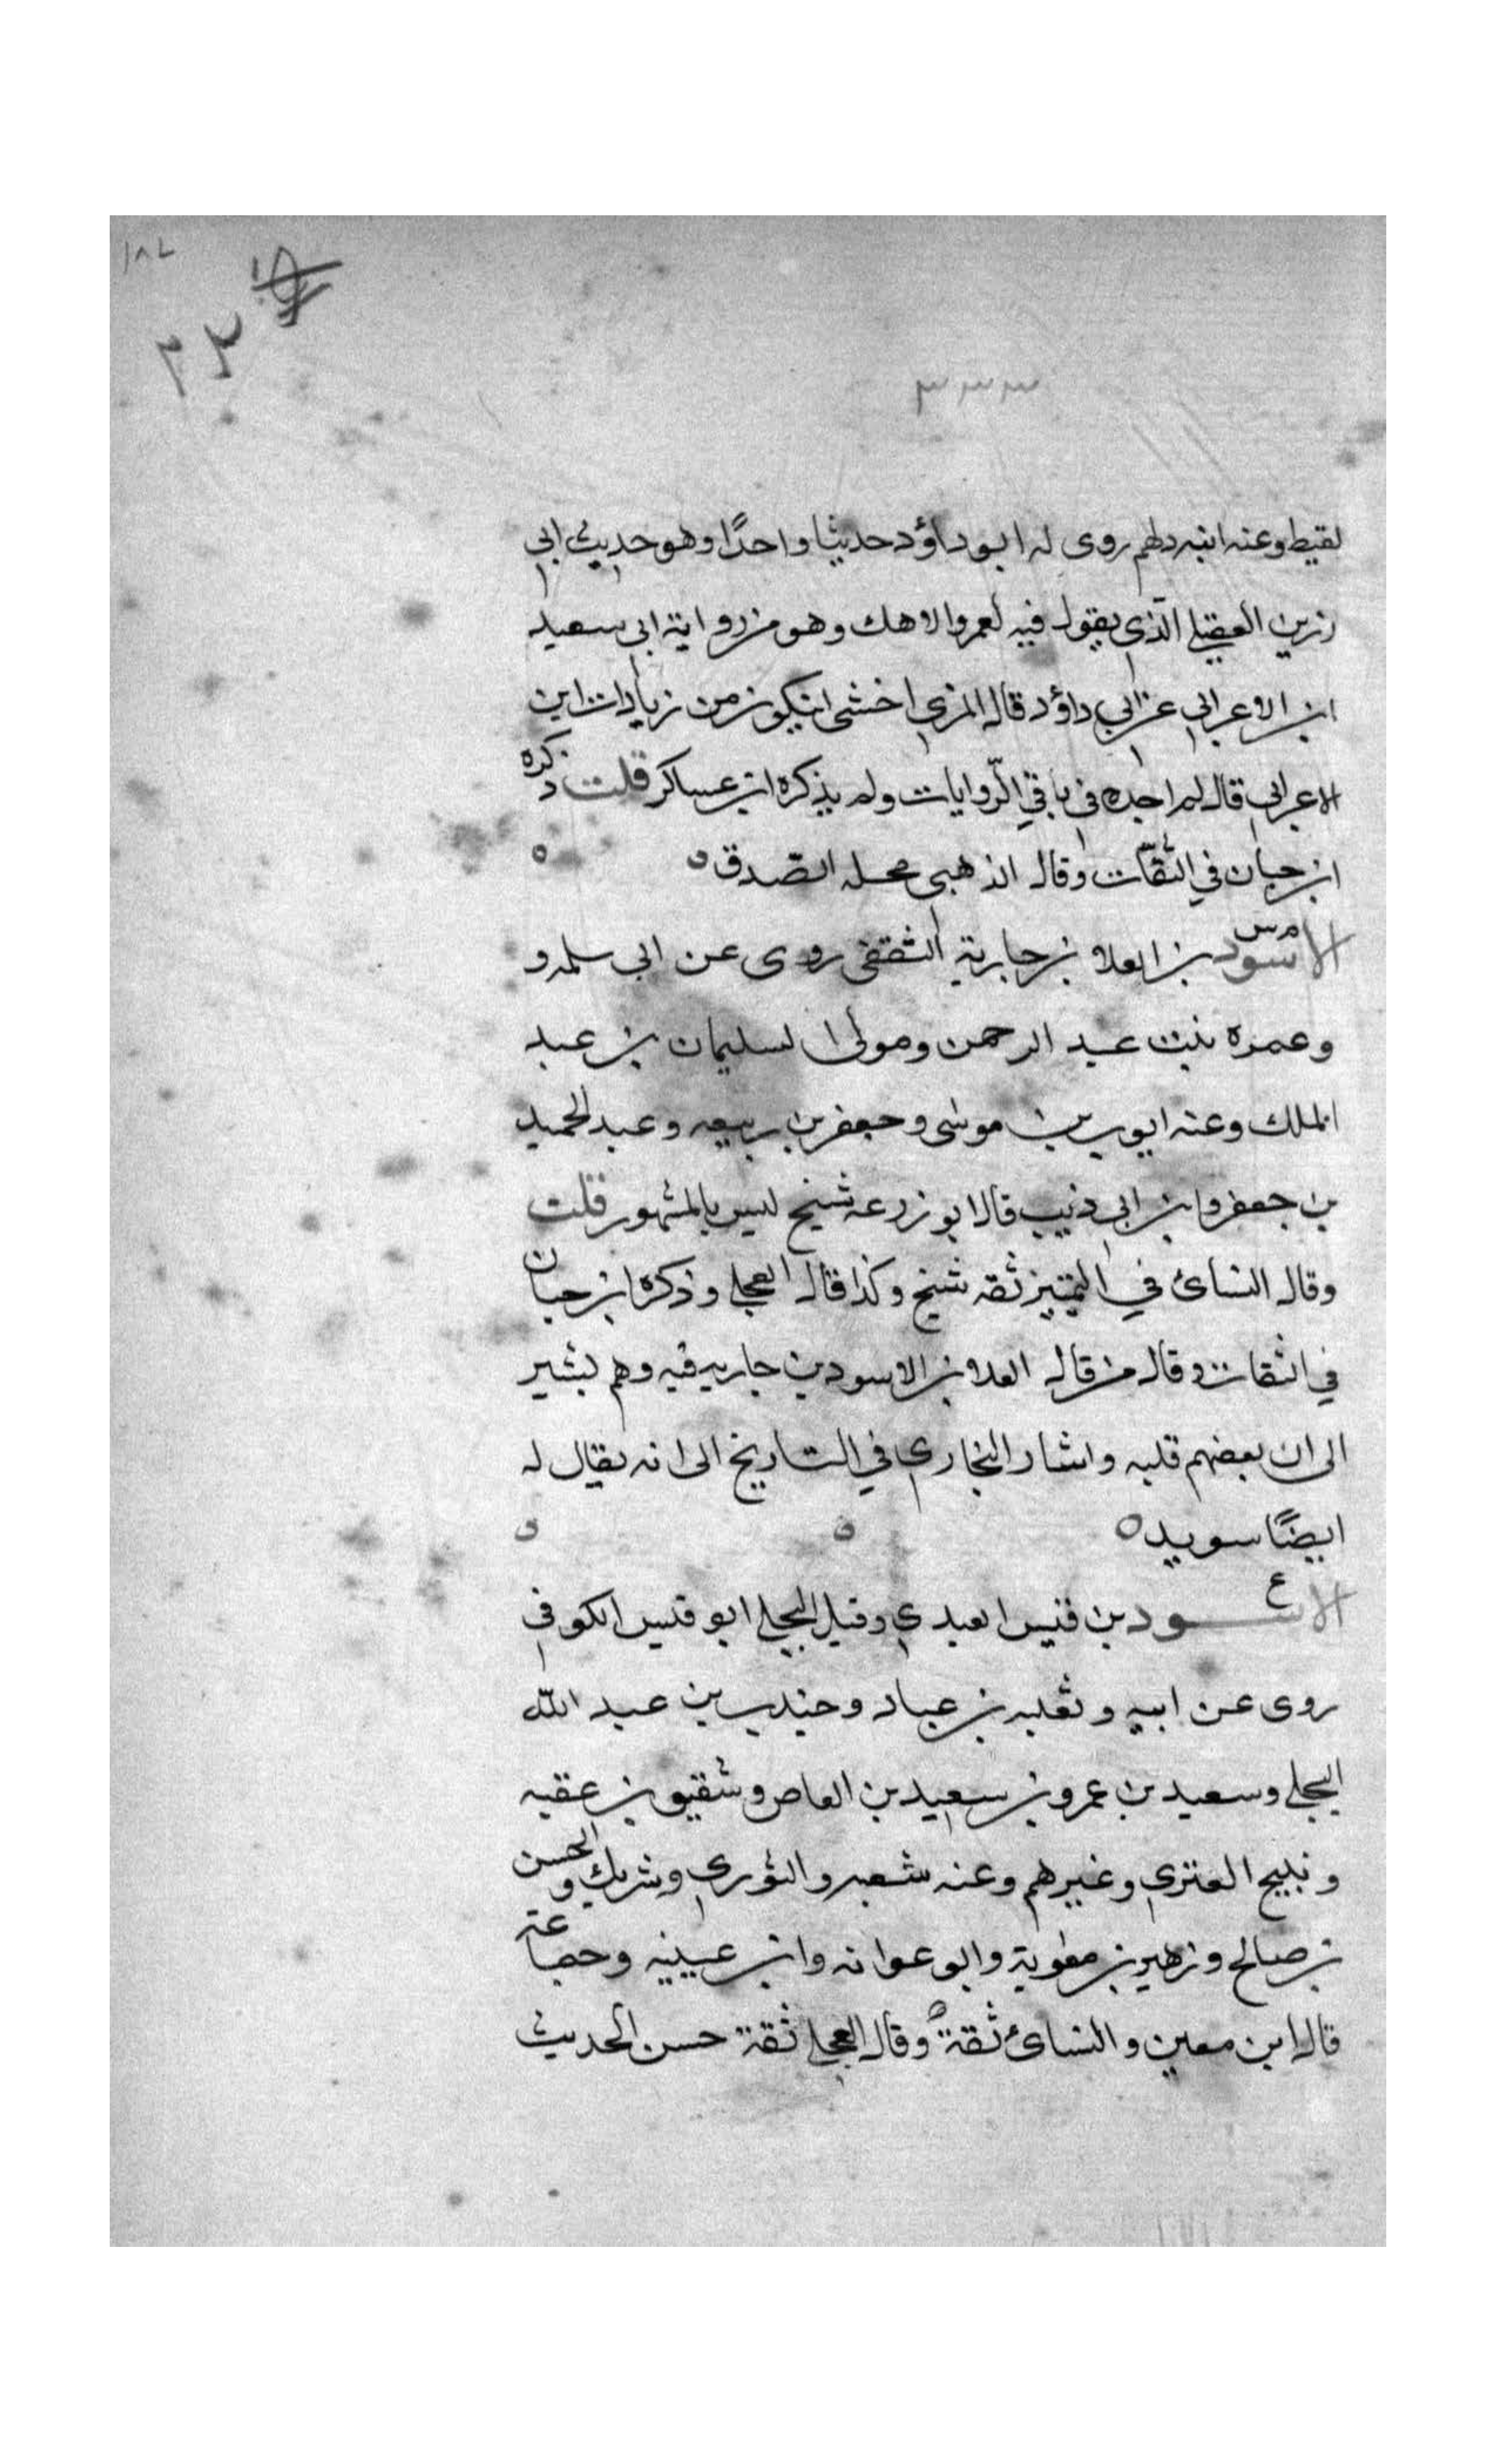 ١٨٢
٢٣
٣٣٣
لقيط وعنه ابنه دلهم روى له ابو داؤد حديثا واحدًا وهو حديث ابي
رزين العقيلي الذي يقول فيه لعمرو الاهك وهو من رواية ابى سعيد
ابن الاعرابي عن ابي داؤد قال المزي اخشى ان يكون من زيادات ابن
الاعرابي قال لم اجده في باقي الرّوايات ولم يذكره ابن عساكر قلت ذكره
ابن حبان في الثقات وقال الذهبي محله الصّدق ه ه
م س
الاسود بن العلا بن جارية الثقفى روى عن ابي سلمه و
وعمره بنت عبد الرحمن ومولى لسليمان بن عبد
الملك وعنه ايوب بن موسى وجعفر بن ربيعه وعبد الحميد
بن جعفر وابن ابي ذئب قال ابو زرعه شيخ ليس بالمشهور قلت
وقال النسائ في التمييز ثقه شيخ وكذا قال العجلي وذكره ابن حبان
في الثقات وقال من قال العلا بن الاسود بن جاريه فيه وهم يشير
الى ان بعضهم قلبه واشار البخاري في التاريخ الى انه يقال له
ايضًا سويد ه ه ه
ع
الاسود بن قيس العبدي وقيل البجلي ابو قيس الكوفي
روى عن ابيه وثعلبه بن عباد وجندب بن عبد الله
البجلي وسعيد بن عمرو بن سعيد بن العاص وشقيق بن عقبه
ونبيح العنزي وغيرهم وعنه شعبه والثوري وشريك والحسن
بن صالح وزهير بن معوية وابو عوانه وابن عيينه وجماعة
قال ابن معين والنسائ ثقة وقال العجلي ثقة حسن الحديث